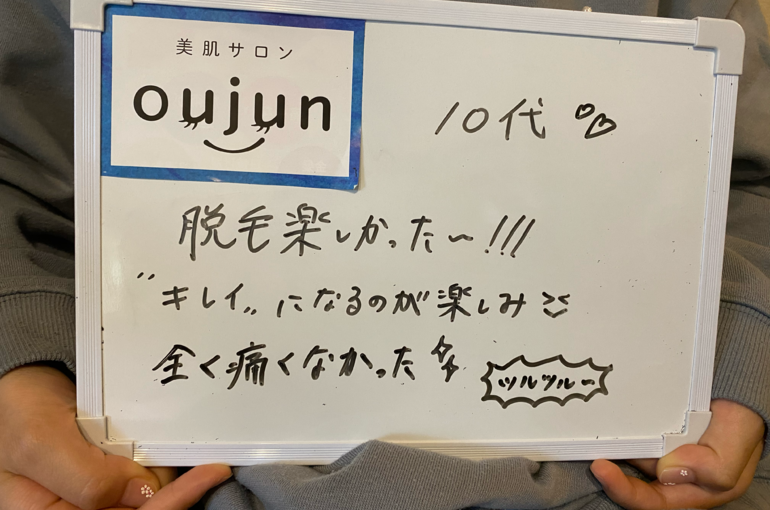 美肌サロン
oujun
10代♡♡
脱毛楽しかった〜!!!
"キレイ"になるのが楽しみ
全く痛くなかった
ツルツル〜